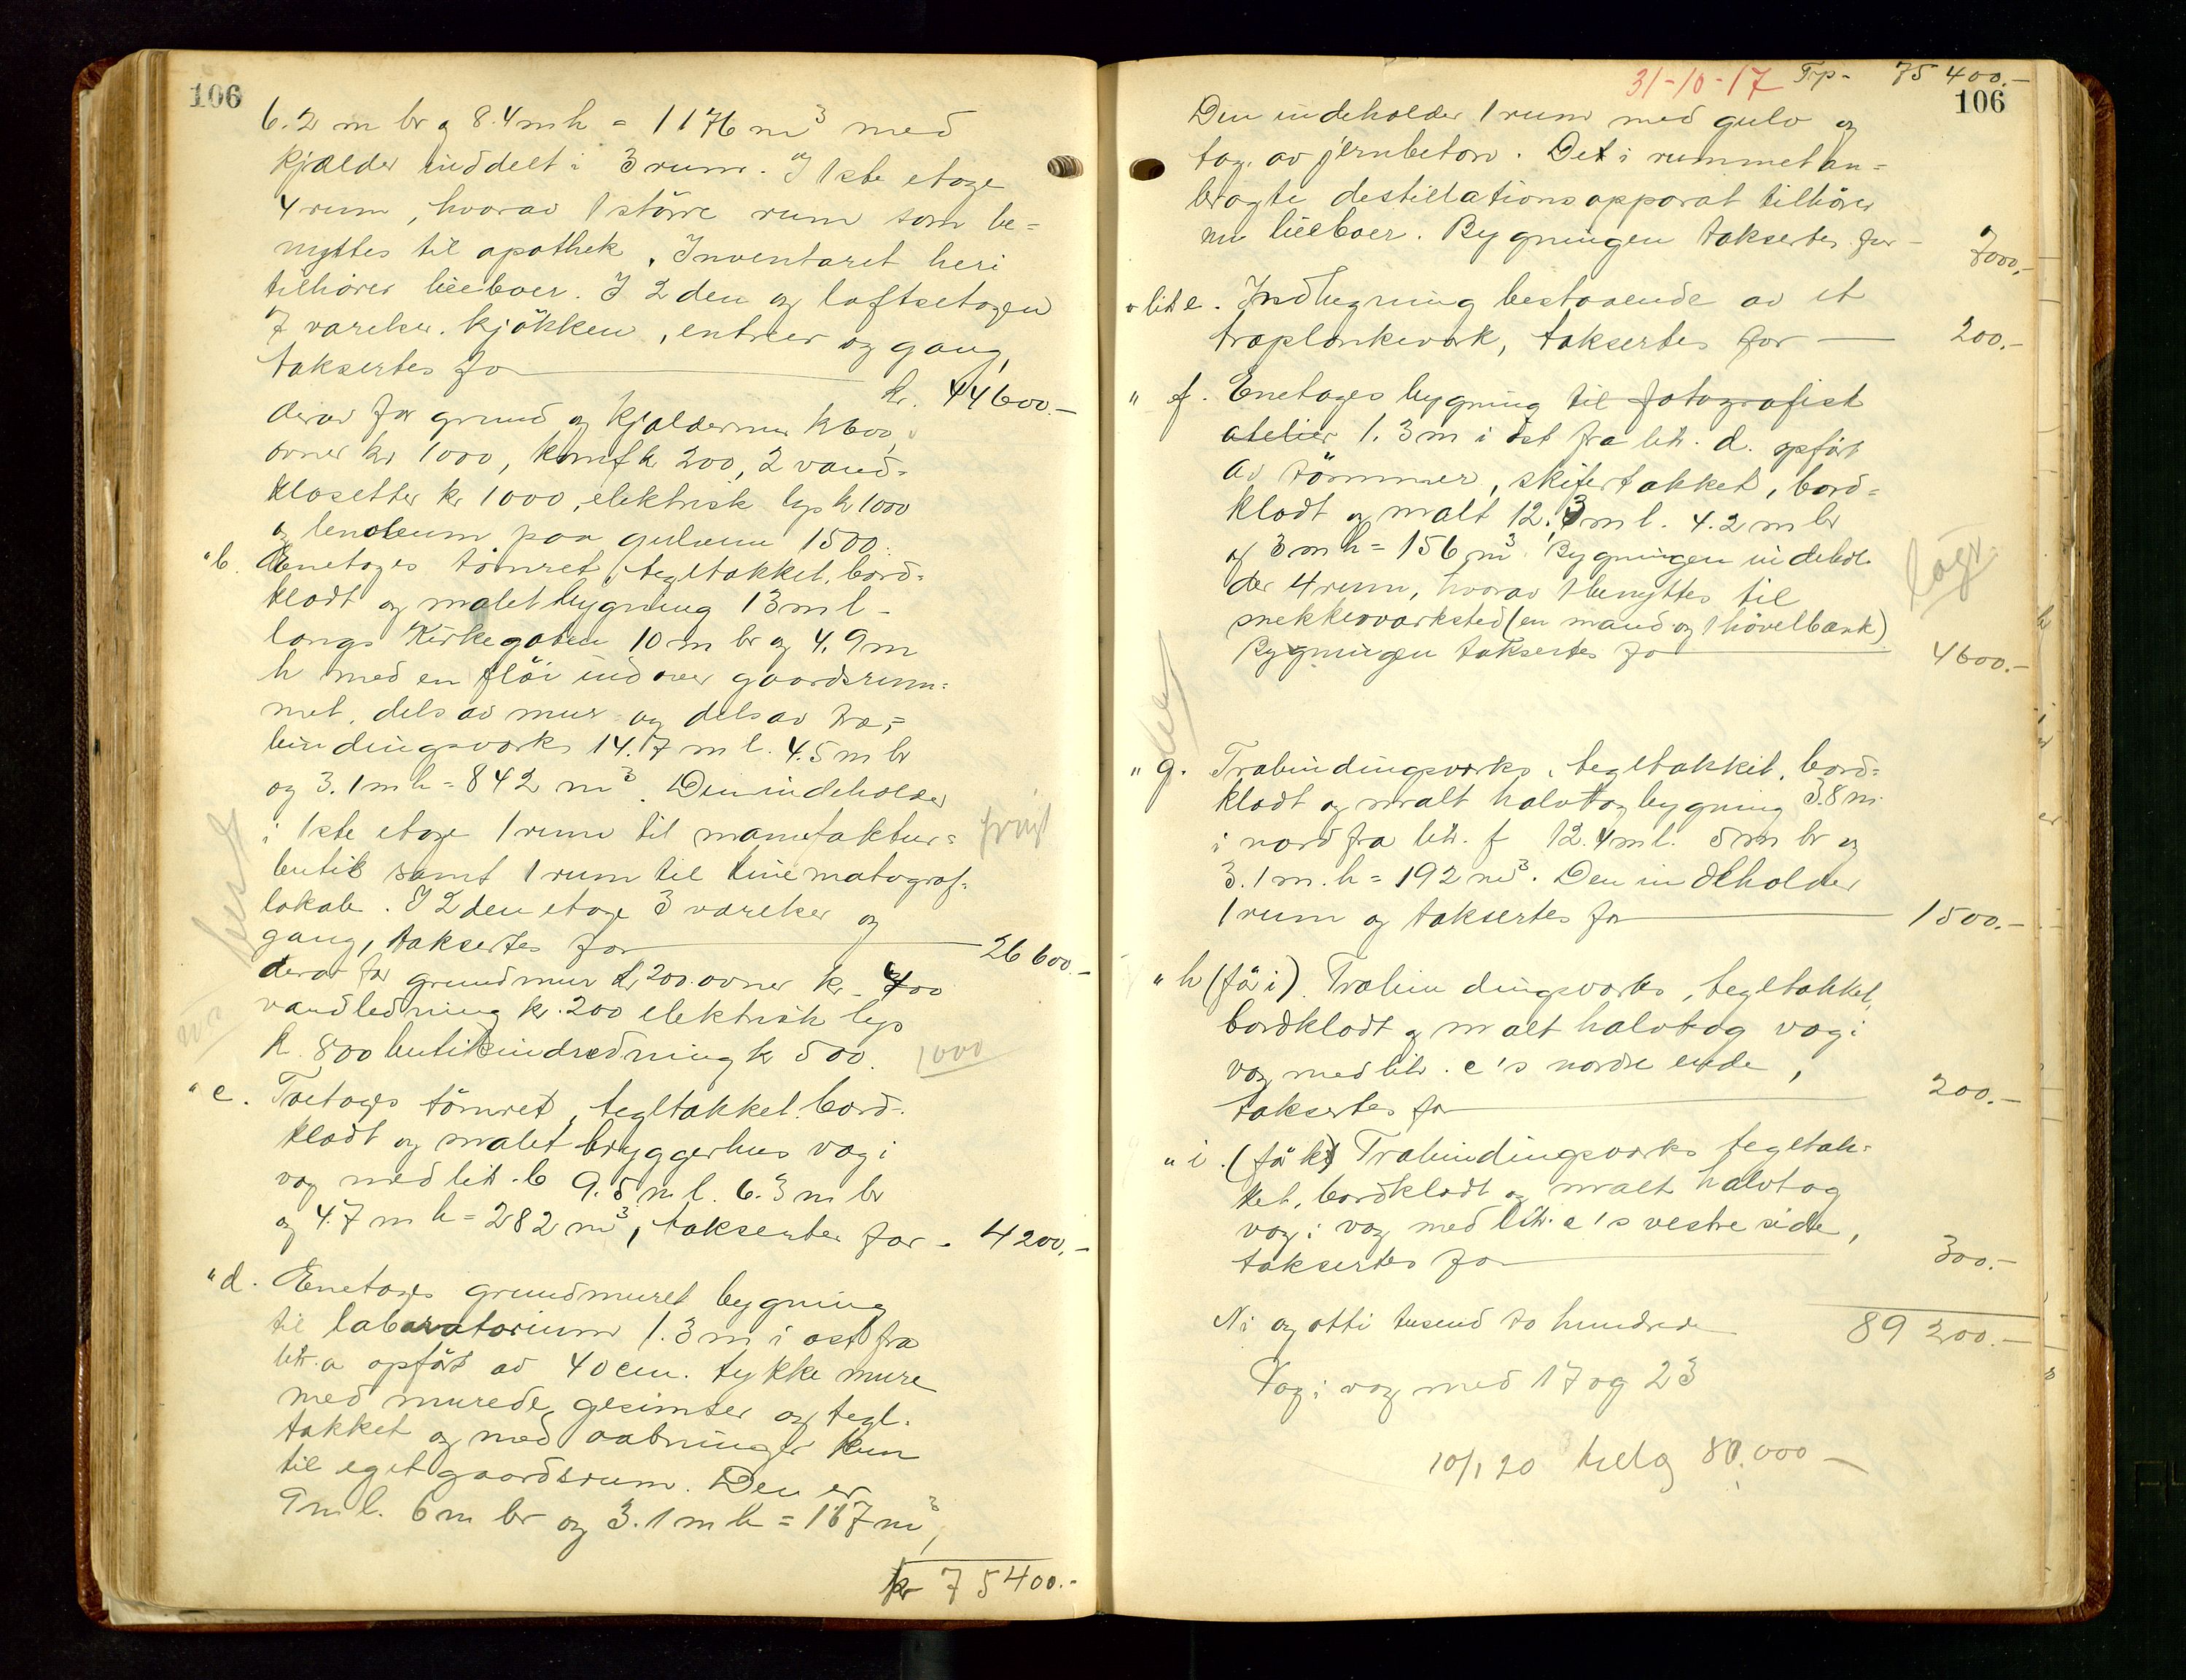 106
6.2 m br og 8.4 m h = 1176 m³ med
kjælder inddelt i 3 rum. I 1ste etage
4 rum, hvorav 1 större rum som be=
nyttes til apothek. Inventaret heri
tilhörer leieboer. I 2den og loftsetagen
7 værelser. kjökken, entreer og gang,
taksertes for kr. 44600.-
derav for grund og kjældermur k 600,
ovner kr 1000, komf k 200, 2 vand=
klosetter kr 1000, elektrisk lys k 1000
og lenoleum paa gulvene 1500.
"b. Enetages tömret, tegltækket, bord=
klædt og malet bygning 13 m l -
langs Kirkegaten 10 m br og 4.9 m
h med en flöi indover gaardsrum=
met, dels av mur og dels av træ=
bindingsverks 14.7 m l. 4.5 m br
og 3.1 m h = 842 m³. Den indeholder
i 1ste etage 1 rum til manufaktur=
butik samt 1 rum til kinematograf=
lokale. I 2den etage 3 værelser og
gang, taksertes for 26600.-
derav for grundmur k 200. ovner kr. 400
vandledning kr. 200 elektrisk lys
k. 800 butikindredning k 500. 1000
"c. Toetages tömret, tegltækket. bord-
klædt og malet bryggerhus væg i
væg med litr. b 9.5 m l. 6.3 m br
og 4.7 m h = 282 m³, taksertes for - 4200.-
"d. Enetages grundmuret bygning
til laboratorium 1.3 m i öst fra
litr. a opfört av 40 cm. tykke mure
med murede gesimser og tegl-
tækket og med aabninger kun
til eget gaardsrum. Den er
9 m l. 6 m br og 3.1 m h = 167 m³,
kr 75400.-
31-10-17 Trp- 75400.-
106
Den indeholder 1 rum med gulv og
tag av jernbeton. Det i rummet an=
bragte destillationsapparat tilhörer
nu leieboer. Bygningen taksertes for - 7000.-
" litr e. Indhegning bestaaende av et
træplankeverk, taksertes for 200.-
" f. Enetages bygning til fotografisk
atelier 1.3 m i öst fra litr. d. opfört
av tömmer, skifertækket, bord=
klædt og malt 12.3 m l. 4.2 m br
og 3 m h = 156 m³. Bygningen indehol-
der 4 rum, hvorav 1 benyttes til
snekkerværksted (en mand og 1 hövelbænk)
Bygningen taksertes for 4600.-
"g. Træbindingsverks, tegltækket, bord=
klædt og malt halvtagbygning 3.8 m
i nord fra litr. f 12.4 m l. 5 m br og
3.1 m. h = 192 m³. Den indeholder
1 rum og taksertes for 1500.-
"h (før i). Træbindingsverks, tegltækket,
bordklædt og malt halvtag væg i
væg med litr. c's nordre ende,
taksertes for 200.-
"i. (før k) Træbindingsverks tegltæk=
ket, bordklædt og malt halvtag
væg i væg med litr. a's vestre side,
taksertes for 300.-
Ni og otti tusend to hundrede 89200.-
Væg i væg med 17 og 23
10/1 20 tillæg 80.000 -